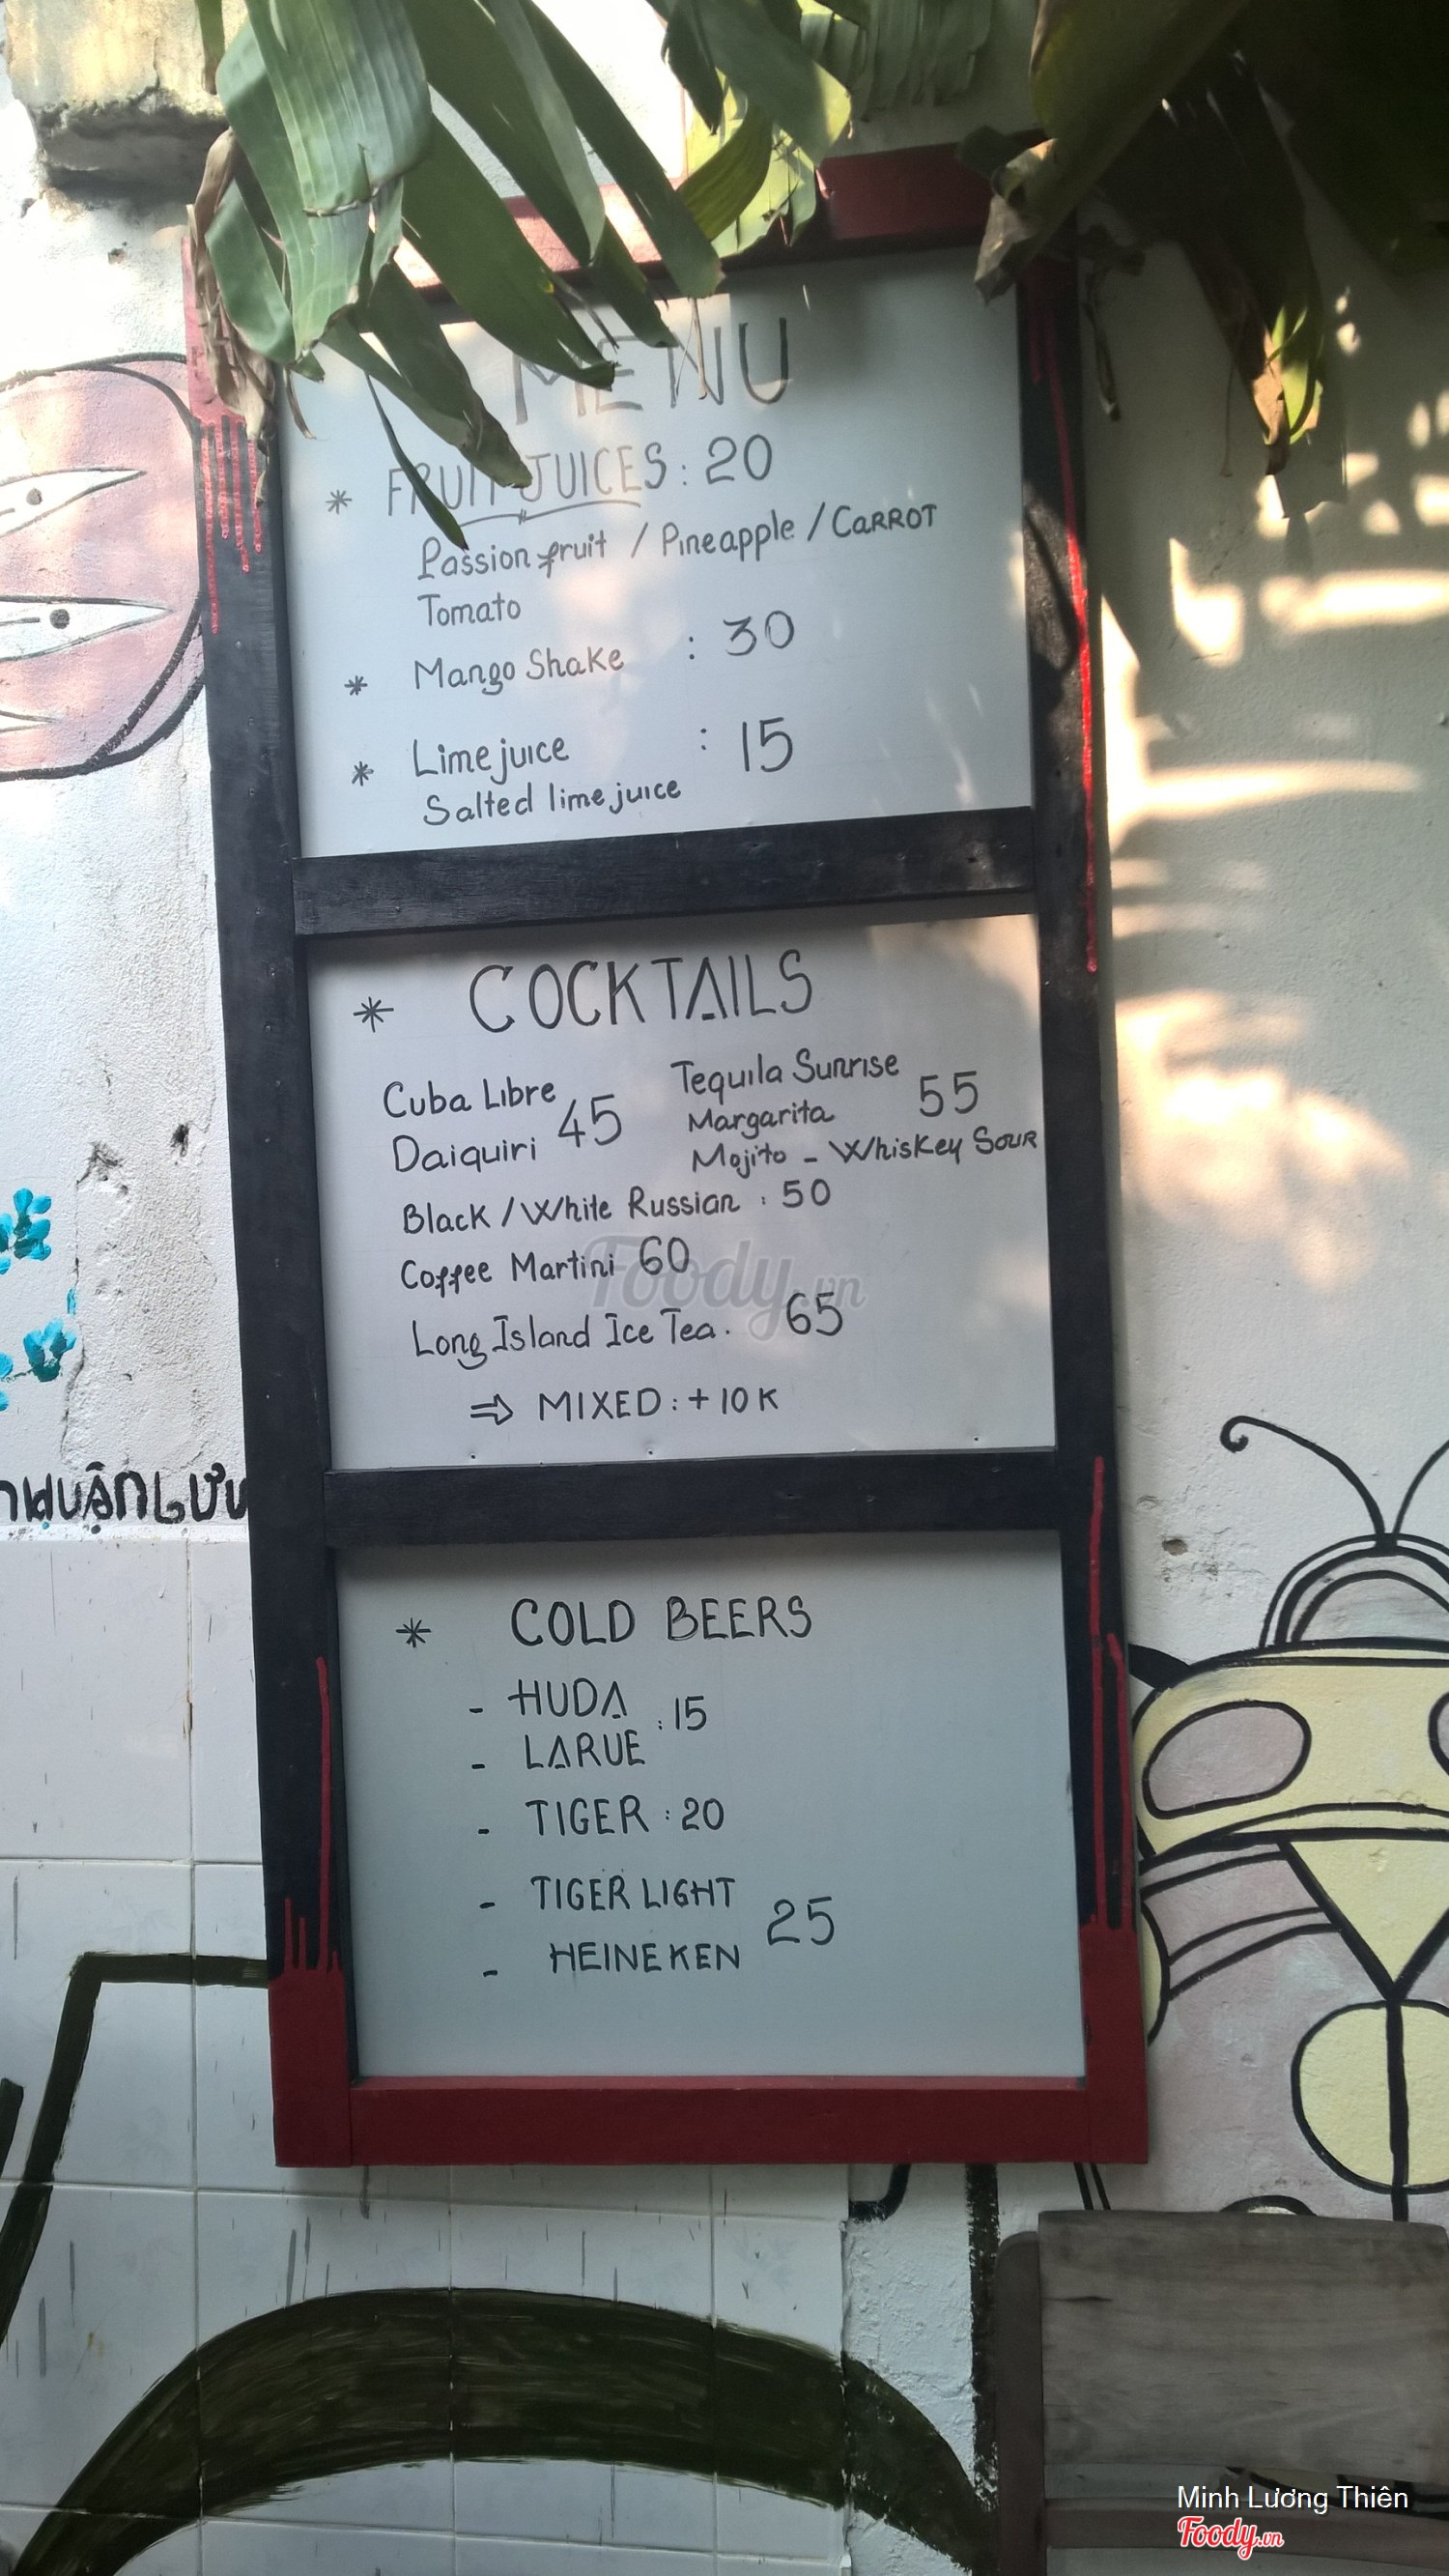 MENU
* FRUIT JUICES : 20
Passion fruit / Pineapple / CARROT
Tomato
* Mango Shake : 30
* Lime juice : 15
Salted lime juice
* COCKTAILS
Cuba Libre
Daiquiri 45
Tequila Sunrise
Margarita 55
Mojito - Whiskey Sour
Black / White Russian : 50
Coffee Martini 60
Long Island Ice Tea . 65
⇒ MIXED : + 10 K
* COLD BEERS
- HUDA
- LARUE : 15
- TIGER : 20
- TIGER LIGHT
- HEINEKEN 25
Foody.vn
Minh Lương Thiên
Foody.vn